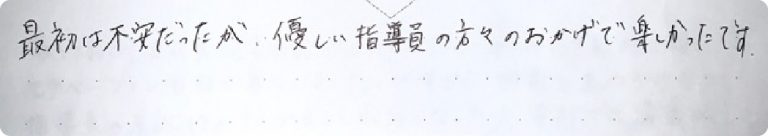 最初は不安だったが、優しい指導員の方々のおかげで楽しかったです.